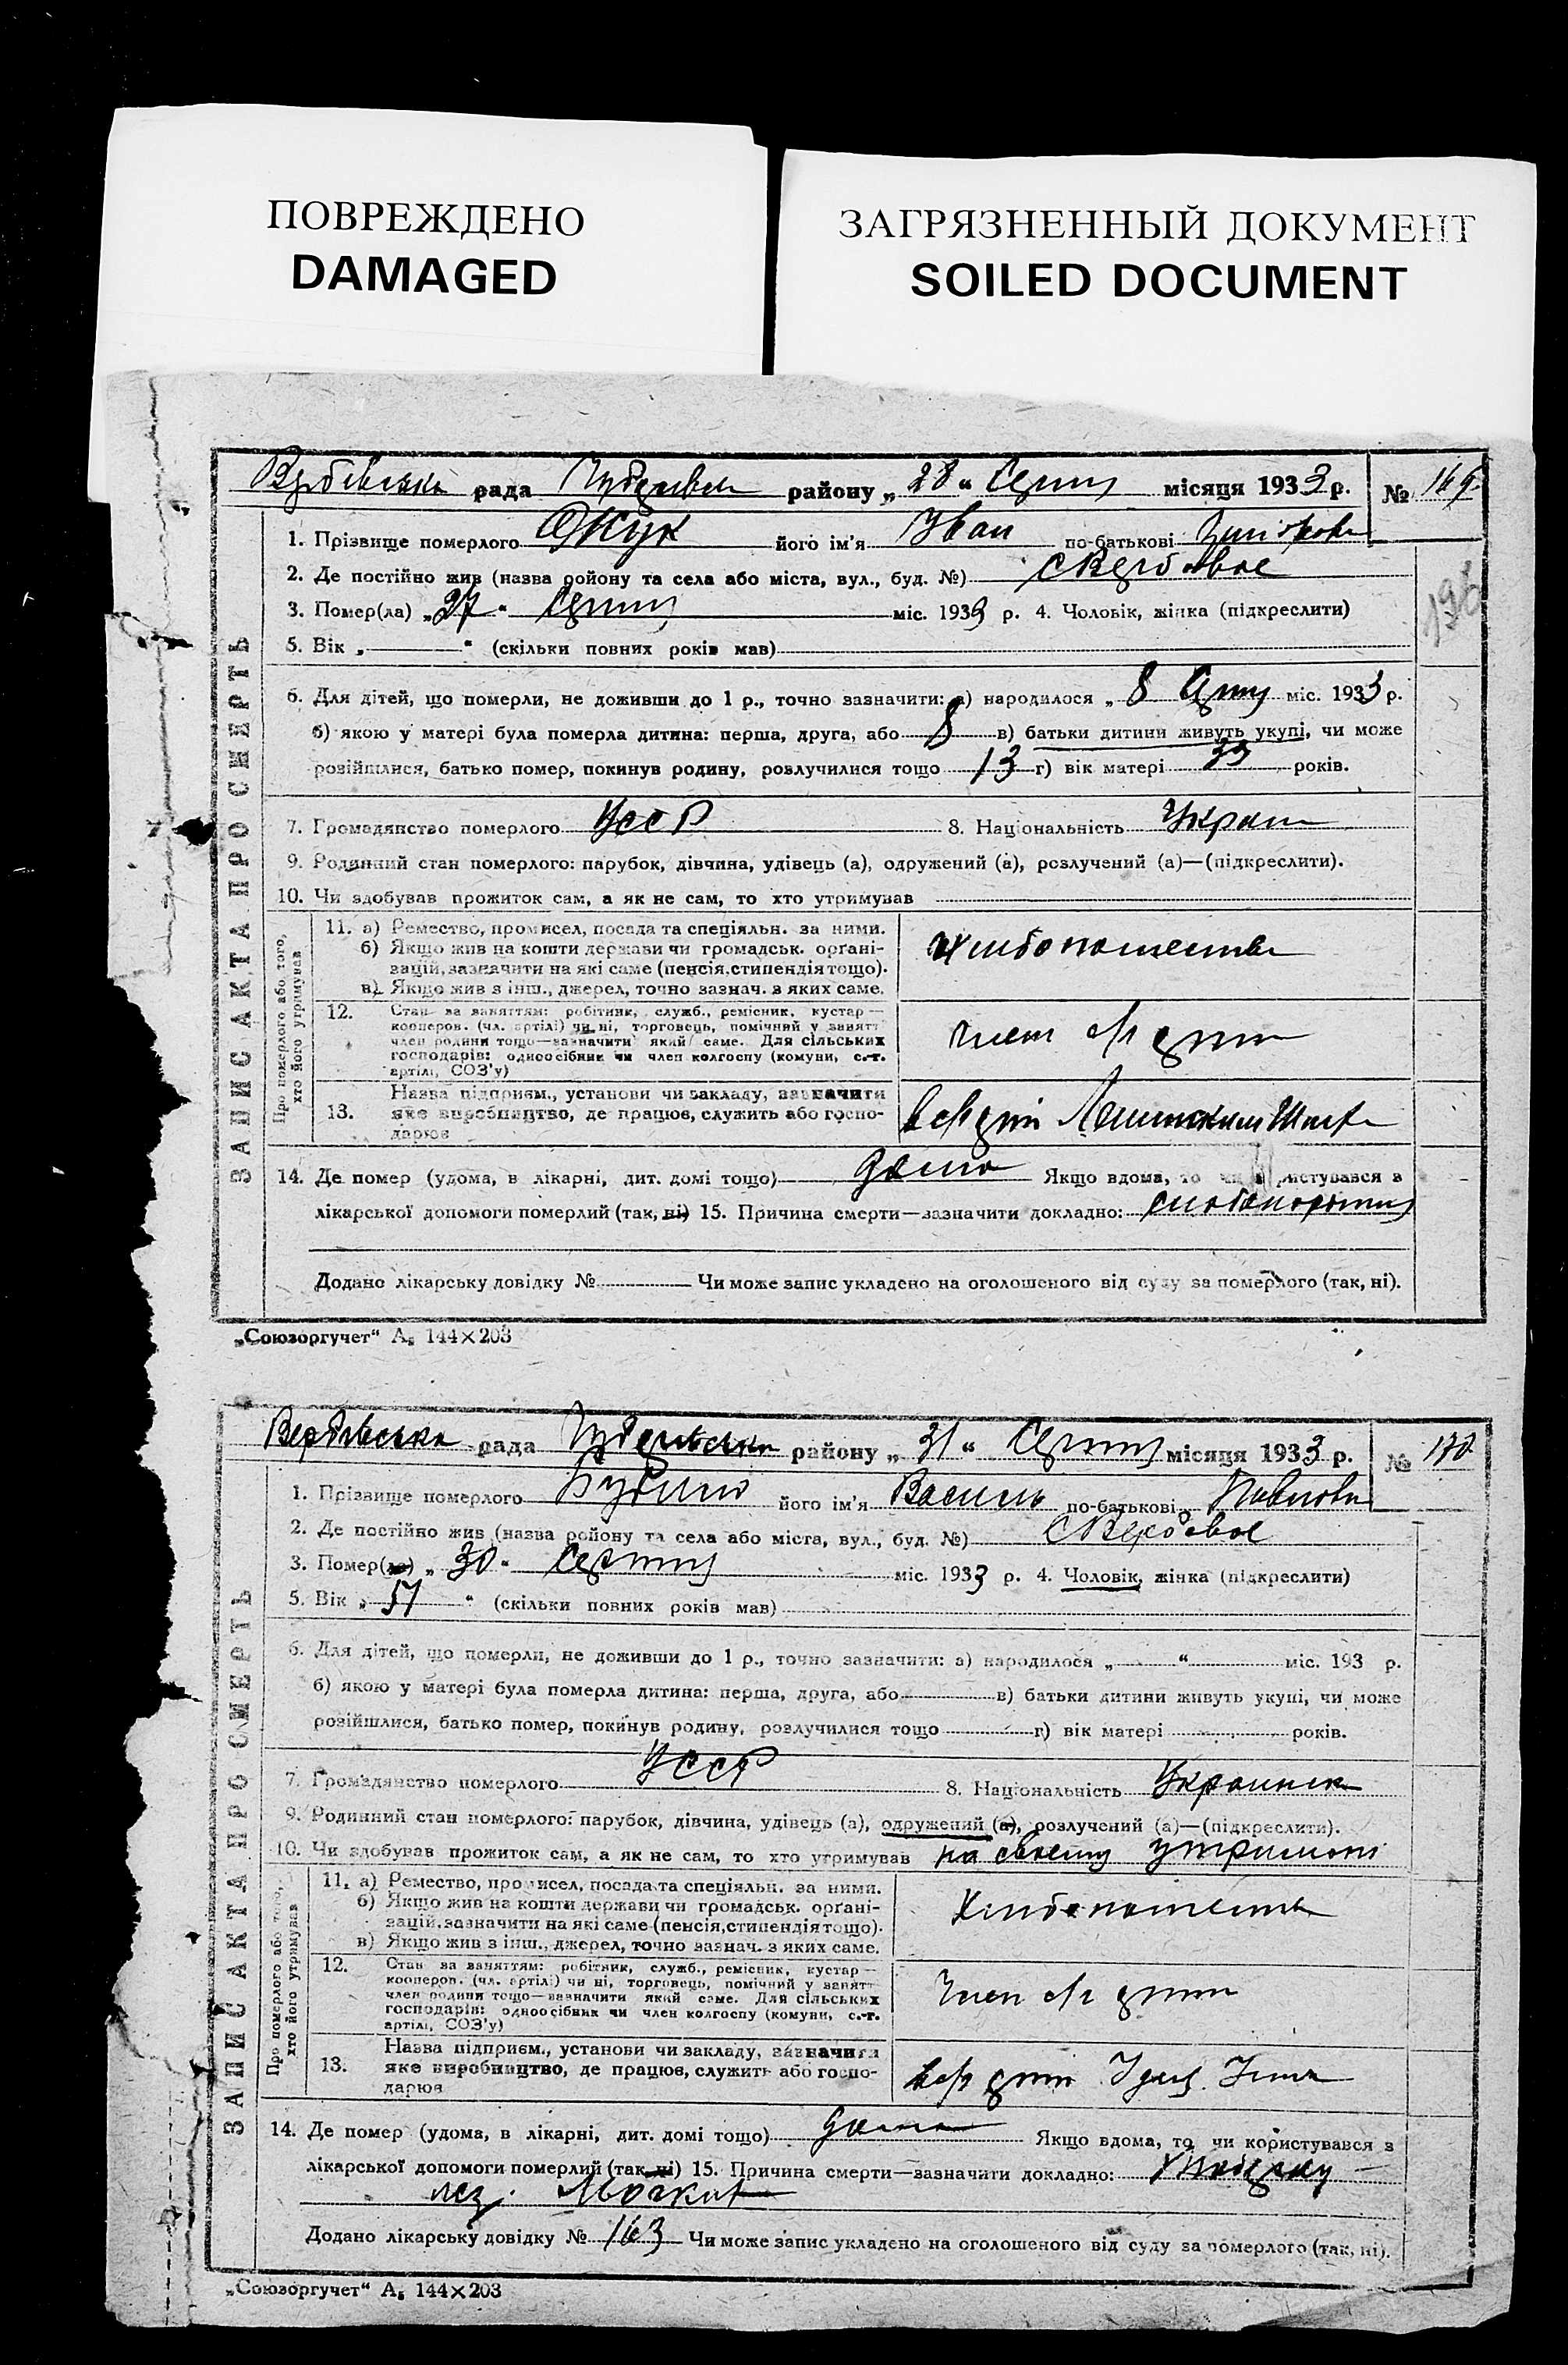 ПОВРЕЖДЕНО
DAMAGED
ЗАГРЯЗНЕННЫЙ ДОКУМЕНТ
SOILED DOCUMENT
рада району „ 28 “ місяця 1933 р. № 169
1. Прізвище померлого Жук його ім'я Іван по-батькові
2. Де постійно жив (назва району та села або міста, вул., буд. №) с Вербовое
3. Помер(ла) „ 27 “ Серпня міс. 1933 р. 4. Чоловік, жінка (підкреслити)
5. Вік „ “ (скільки повних років мав)
6. Для дітей, що померли, не доживши до 1 р., точно зазначити: а) народилося „ 8 міс. 1933 р.
б) якою у матері була померла дитина: перша, друга, або 8 в) батьки дитини живуть укупі, чи може
розійшлися, батько помер, покинув родину, розлучилися тощо 13 г) вік матері 33 років.
7. Громадянство померлого УССР 8. Національність Украин
9. Родинний стан померлого: парубок, дівчина, удівець (а), одружений (а), розлучений (а)—(підкреслити).
10. Чи здобував прожиток сам, а як не сам, то хто утримував
11. а) Ремество, промисел, посада та спеціяльн. за ними.
б) Якщо жив на кошти держави чи громадськ. орґані-
зацій, зазначити на які саме (пенсія, стипендія тощо).
в) Якщо жив з інш., джерел, точно зазнач. з яких саме.
12. Стан за заняттям: робітник, служб., ремісник, кустар—
кооперов. (чл. артілі) чи ні, торговець, помічний у занятт
член родини тощо—зазначити який саме. Для сільських
господарів: одноосібник чи член колгоспу (комуни, с.-г.
артілі, СОЗ'у)
член
13. Назва підприєм., установи чи закладу, зазначити
яке виробництво, де працює, служить або госпо-
дарює
14. Де помер (удома, в лікарні, дит. домі тощо) дома Якщо вдома, то чи користувався з
лікарської допомоги померлий (так, ні) 15. Причина смерти—зазначити докладно:
Додано лікарську довідку № Чи може запис укладено на оголошеного від суду за померлого (так, ні).
ЗАПИС АКТА ПРО СМЕРТЬ
Про померлого або того, хто його утримував
„Союзоргучет“ А₅ 144×203
Вербівська рада району „ 31 “ Серпня місяця 1933 р. № 170
1. Прізвище померлого його ім'я Василь по-батькові Павлови
2. Де постійно жив (назва району та села або міста, вул., буд. №) с Вербовое
3. Помер(ла) „ 30 “ Серпня міс. 1933 р. 4. Чоловік, жінка (підкреслити)
5. Вік „ 57 “ (скільки повних років мав)
6. Для дітей, що померли, не доживши до 1 р., точно зазначити: а) народилося „ “ міс. 193 р.
б) якою у матері була померла дитина: перша, друга, або в) батьки дитини живуть укупі, чи може
розійшлися, батько помер, покинув родину, розлучилися тощо г) вік матері років.
7. Громадянство померлого УССР 8. Національність
9. Родинний стан померлого: парубок, дівчина, удівець (а), одружений (а), розлучений (а)—(підкреслити).
10. Чи здобував прожиток сам, а як не сам, то хто утримував на своєму
11. а) Ремество, промисел, посада та спеціяльн. за ними.
б) Якщо жив на кошти держави чи громадськ. орґані-
зацій, зазначити на які саме (пенсія, стипендія тощо).
в) Якщо жив з інш., джерел, точно зазнач. з яких саме.
12. Стан за заняттям: робітник, служб., ремісник, кустар—
кооперов. (чл. артілі) чи ні, торговець, помічний у занятт
член родини тощо—зазначити який саме. Для сільських
господарів: одноосібник чи член колгоспу (комуни, с.-г.
артілі, СОЗ'у)
Член
13. Назва підприєм., установи чи закладу, зазначити
яке виробництво, де працює, служить або госпо-
дарює
14. Де помер (удома, в лікарні, дит. домі тощо) дома Якщо вдома, то чи користувався з
лікарської допомоги померлий (так, ні) 15. Причина смерти—зазначити докладно:
Додано лікарську довідку № 163 Чи може запис укладено на оголошеного від суду за померлого (так, ні).
ЗАПИС АКТА ПРО СМЕРТЬ
Про померлого або того, хто його утримував
„Союзоргучет“ А₅ 144×203